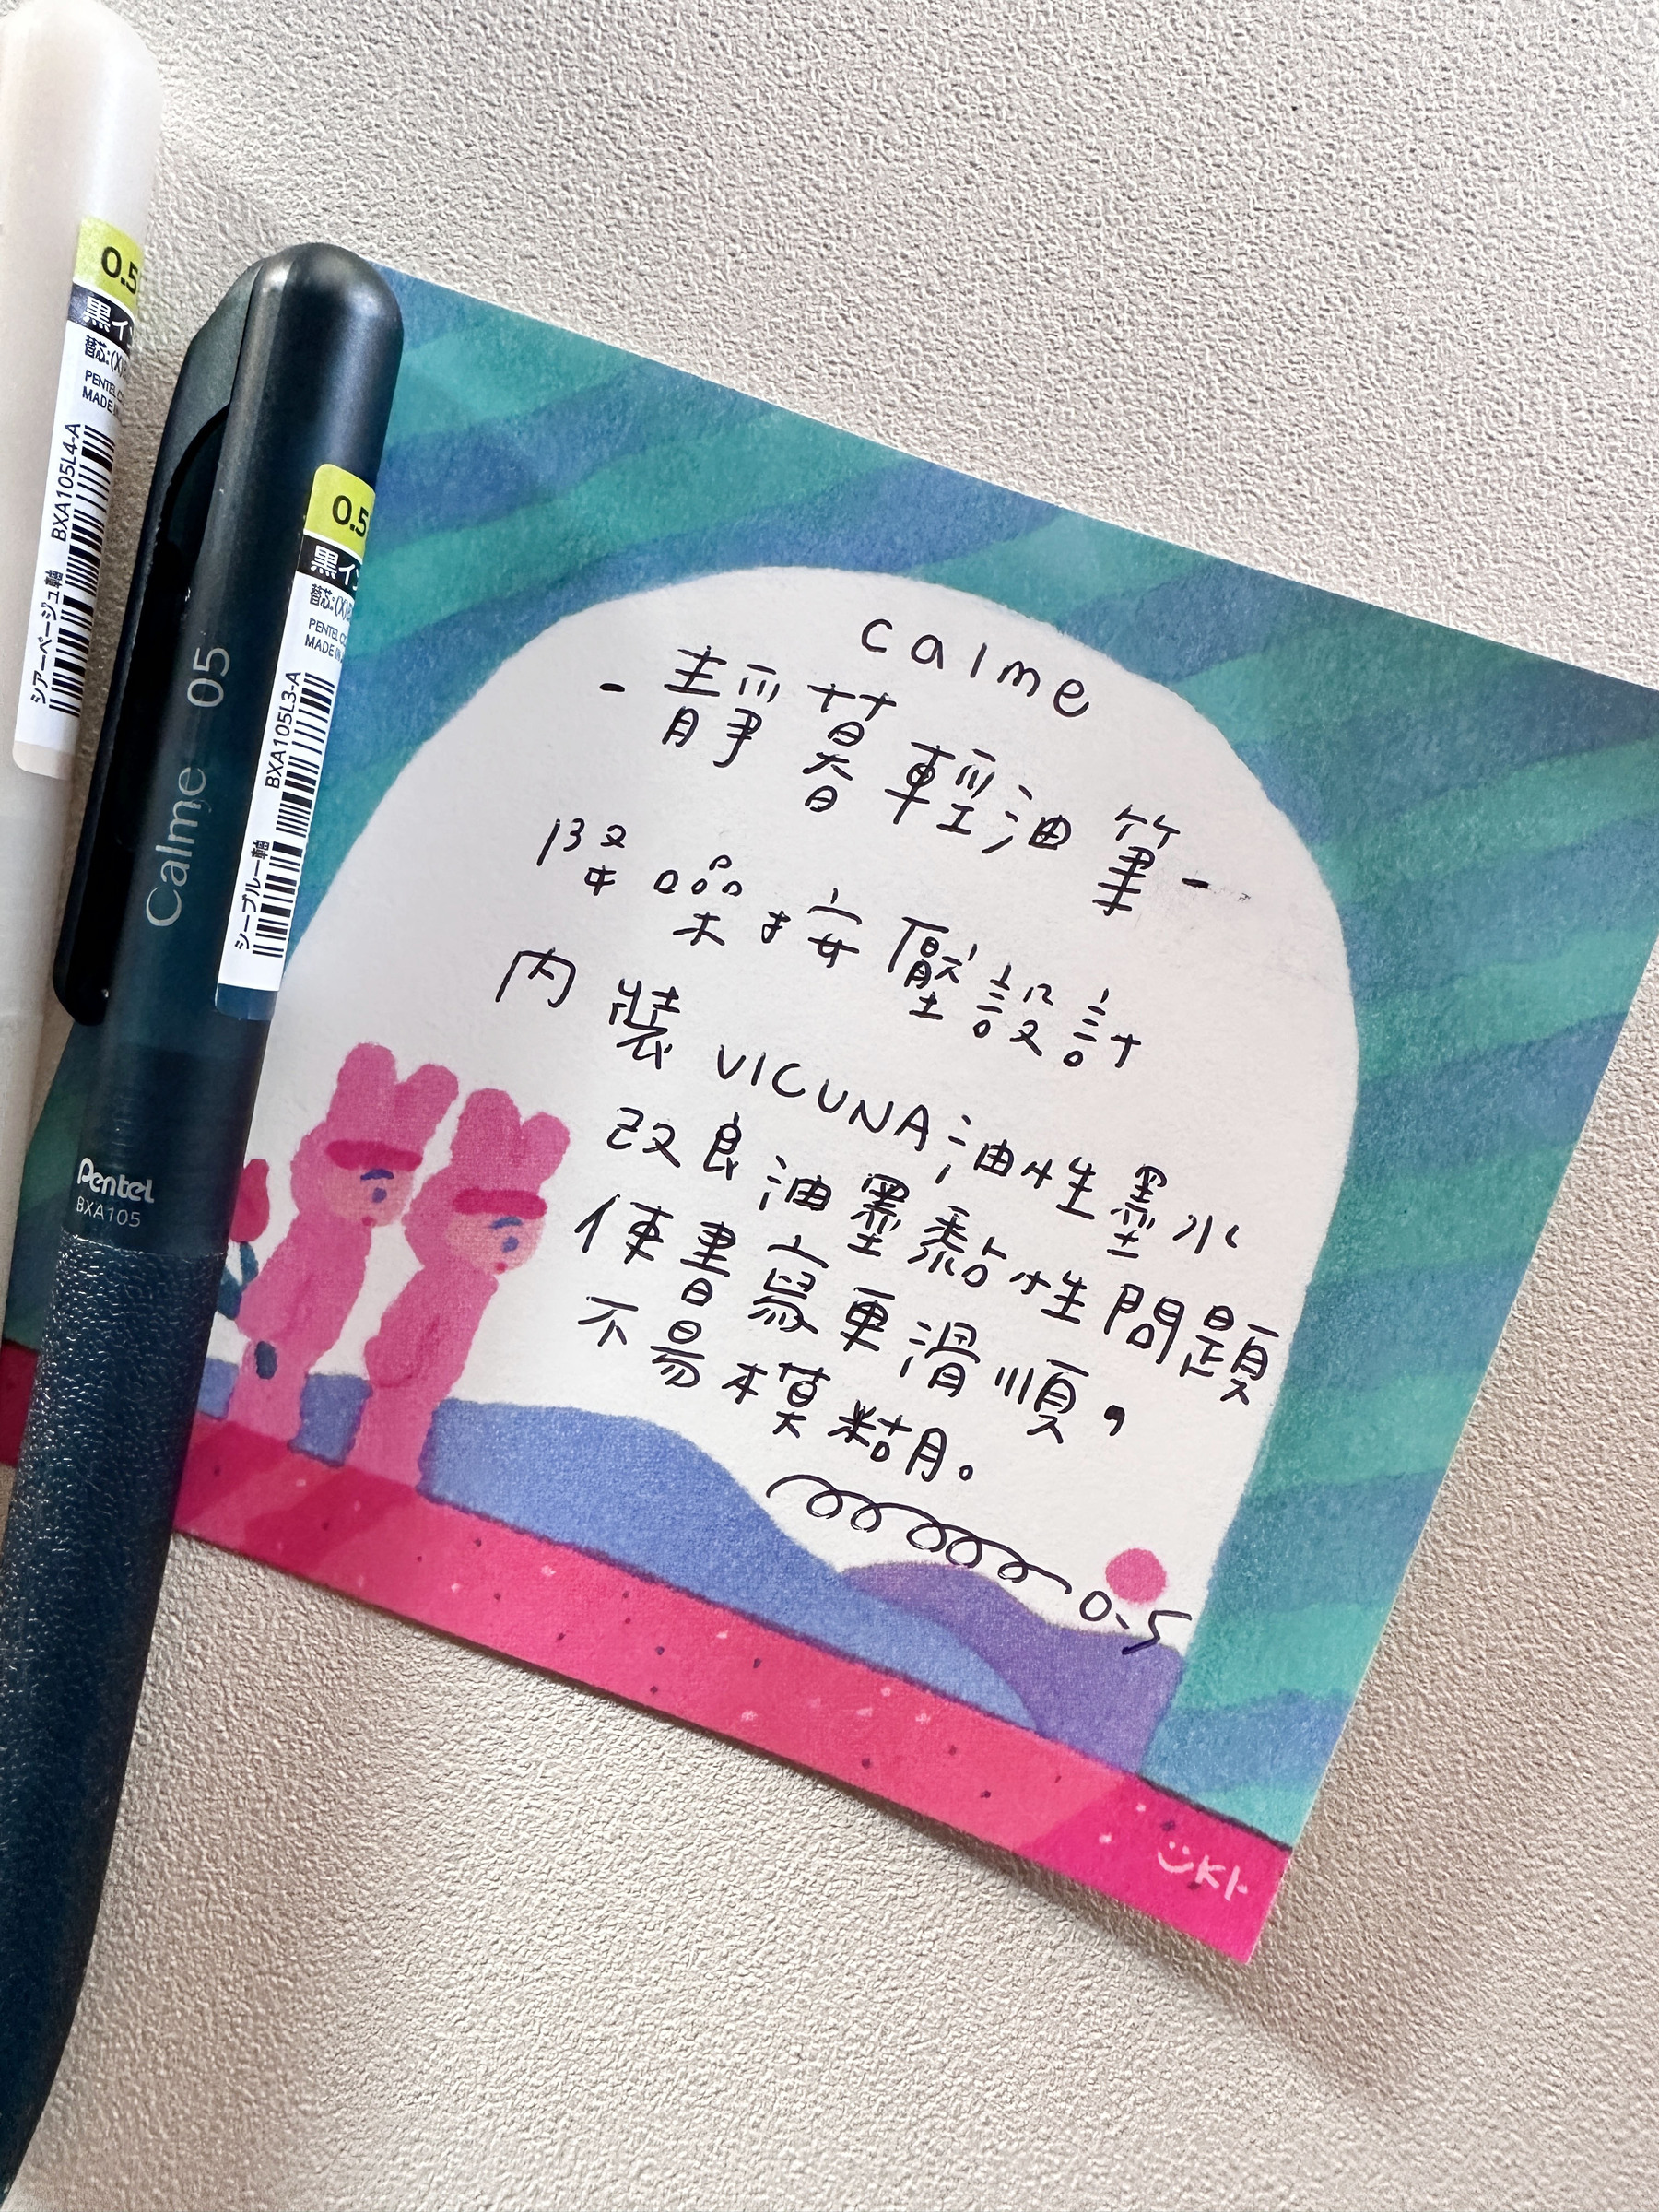 0.5
黒イン
替芯:(X)
PENTEL C
MADE IN
BXA105L4-A
シアーベージュ軸
0.5
黒イン
替芯:(X)
PENTEL CO
MADE IN
BXA105L3-A
シーブルー軸
Calme 05
Pentel
BXA105
calme
-靜暮輕油筆-
降噪按壓設計
內裝VICUNA油性墨水
改良油墨黏性問題
使書寫更滑順，
不易模糊。
0.5